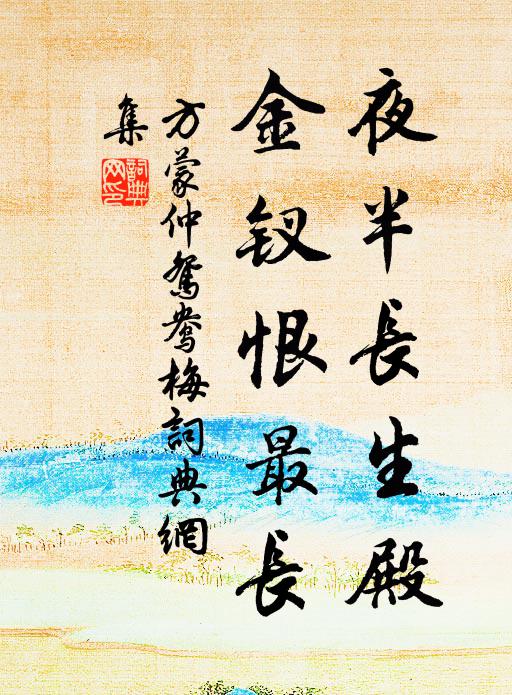 夜半長生殿
金釵恨最長
方蒙仲鴛鴦梅詞典網
集
詞典
网印